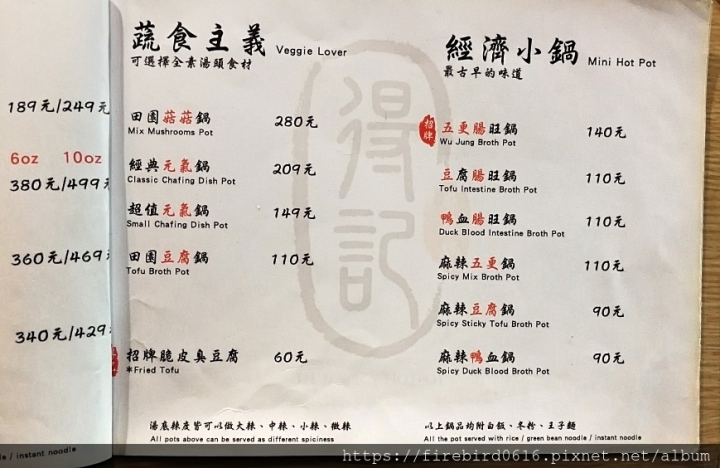 189元/249元
6oz 10oz
380元/499元
360元/469
340元/429
le / instant noodle
蔬食主義 Veggie Lover
可選擇全素湯頭食材
田園菇菇鍋 280元
Mix Mushrooms Pot
經典元氣鍋 209元
Classic Chafing Dish Pot
超值元氣鍋 149元
Small Chafing Dish Pot
田園豆腐鍋 110元
Tofu Broth Pot
招牌脆皮臭豆腐 60元
*Fried Tofu
湯底辣度皆可以做大辣、中辣、小辣、微辣
All pots above can be served as different spiciness
得記
經濟小鍋 Mini Hot Pot
最古早的味道
招牌
五更腸旺鍋 140元
Wu Jung Broth Pot
豆腐腸旺鍋 110元
Tofu Intestine Broth Pot
鴨血腸旺鍋 110元
Duck Blood Intestine Broth Pot
麻辣五更鍋 110元
Spicy Mix Broth Pot
麻辣豆腐鍋 90元
Spicy Sticky Tofu Broth Pot
麻辣鴨血鍋 90元
Spicy Duck Blood Broth Pot
以上鍋品均附白飯、冬粉、王子麵
All the pot served with rice / green bean noodle / instant noodle
https://firebird0616.pixnet.net/album